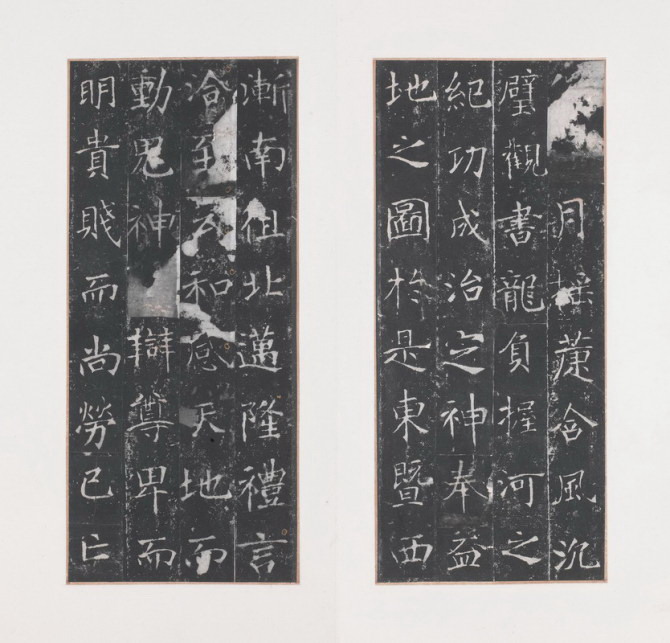 月搖含風沉
璧觀書龍負握河之
紀功成治之神奉益
地之圖於是東暨西
漸南徂北邁隆禮言
洽至和感天地而
動鬼神辯尊卑而
明貴賤而尚勞己亡